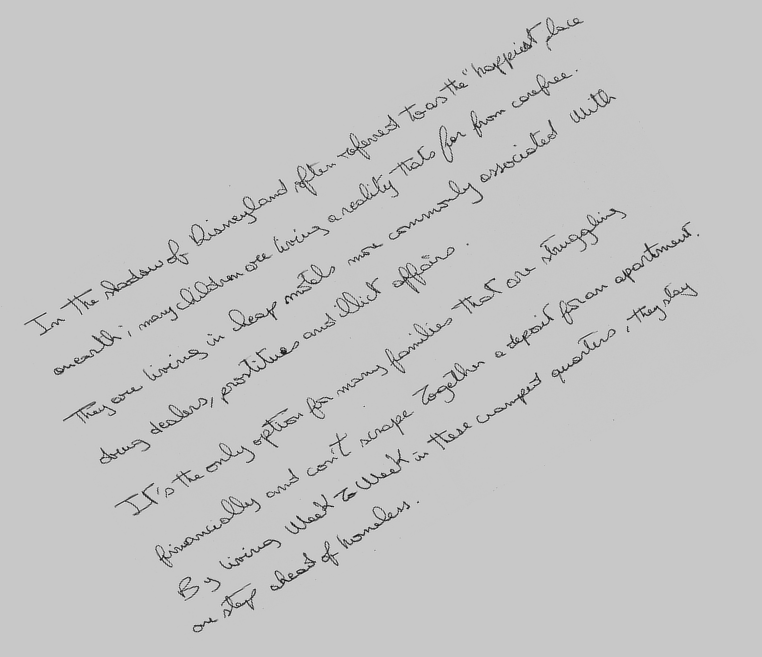 In the shadow of Disneyland often referred to as the "happiest place
on earth; many children are living a reality thats far from carefree.
They are living in cheap motels more commonly associated with
drug dealers, prostitues and illict affairs.
It's the only option for many families that are struggling
financially and can't scrape together a deposit for an apartment.
By living Week to Week in these cramped quarters, they stay
one step ahead of homeless.